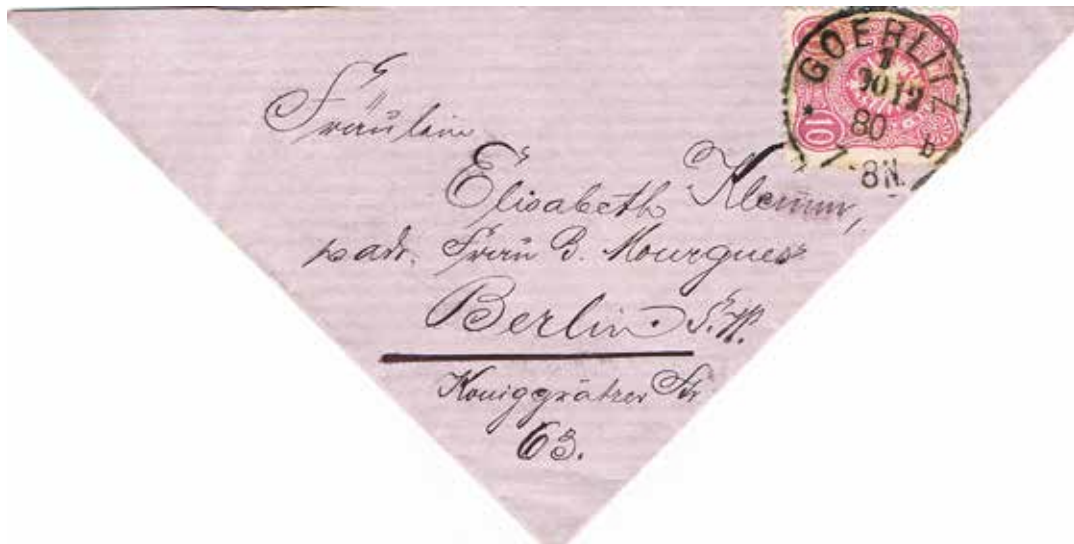 GOERLITZ
1
30 12
80
7-8N.
b
10
Fräulein
Elisabeth Klemm,
p adr. Frau B. Mourgues
Berlin. S.W.
Königgrätzer Str
63.